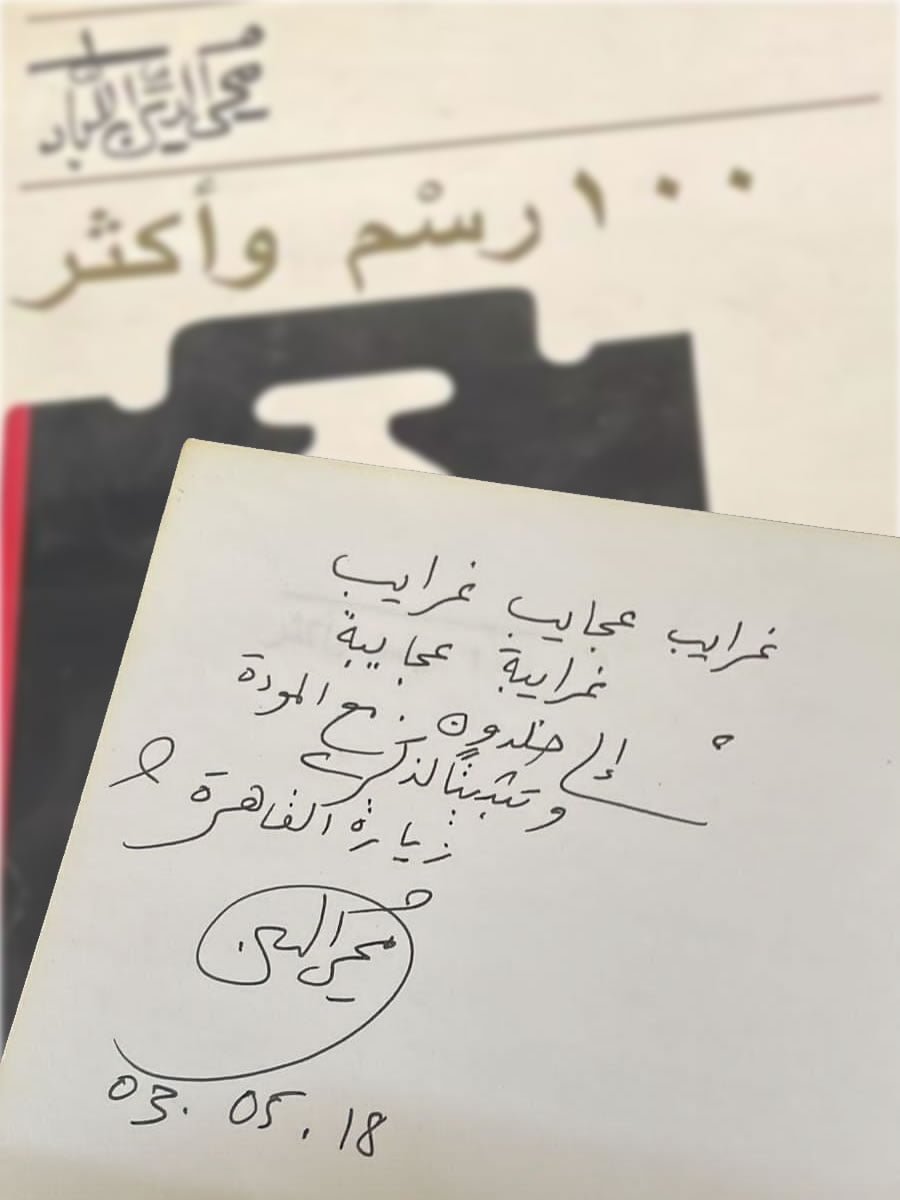 محيى الدين اللباد
١٠٠ رسْم وأكثر
غرايب عجايب غرايب
غرايبة عجايبة
إلى خلدون. مع المودة
وتثبيتًا لذكرى
زيارة القاهرة
محيى الدين
03. 05. 18